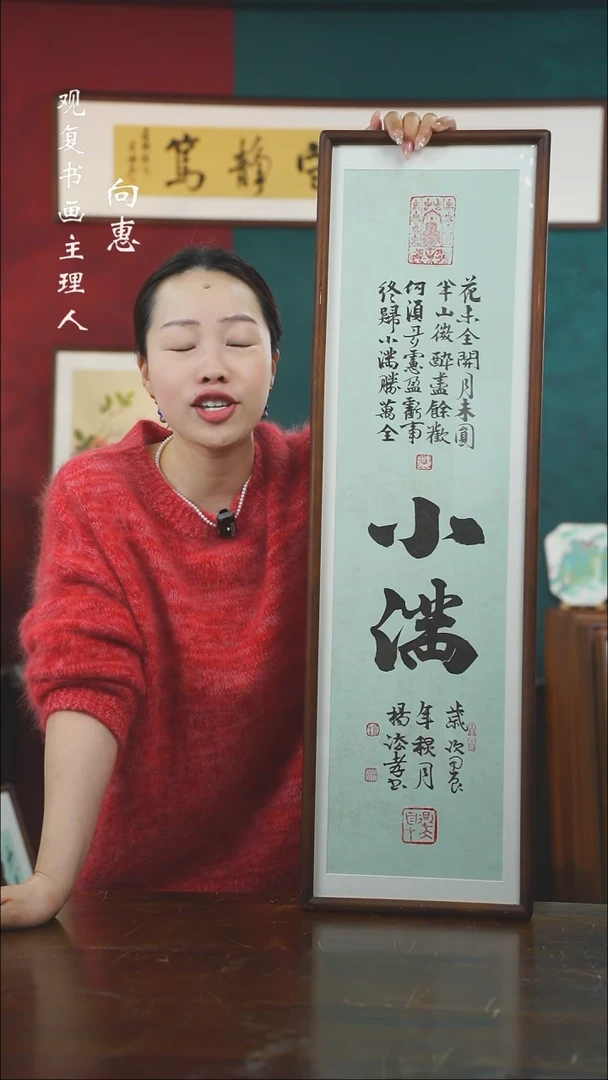 观复书画主理人
向惠
靜篤
花未全開月未圓
半山微醉盡餘歡
何須多慮盈虧事
終歸小滿勝萬全
小滿
歲次甲辰
年 月
楊 孝書